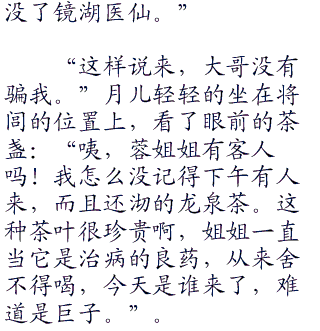 没了镜湖医仙。”
“这样说来，大哥没有
骗我。”月儿轻轻的坐在将
间的位置上，看了眼前的茶
盏：“咦，蓉姐姐有客人
吗！我怎么没记得下午有人
来，而且还沏的龙泉茶。这
种茶叶很珍贵啊，姐姐一直
当它是治病的良药，从来舍
不得喝，今天是谁来了，难
道是巨子。”。